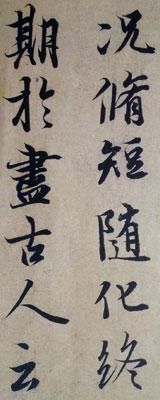 况脩短随化終
期於盡古人云